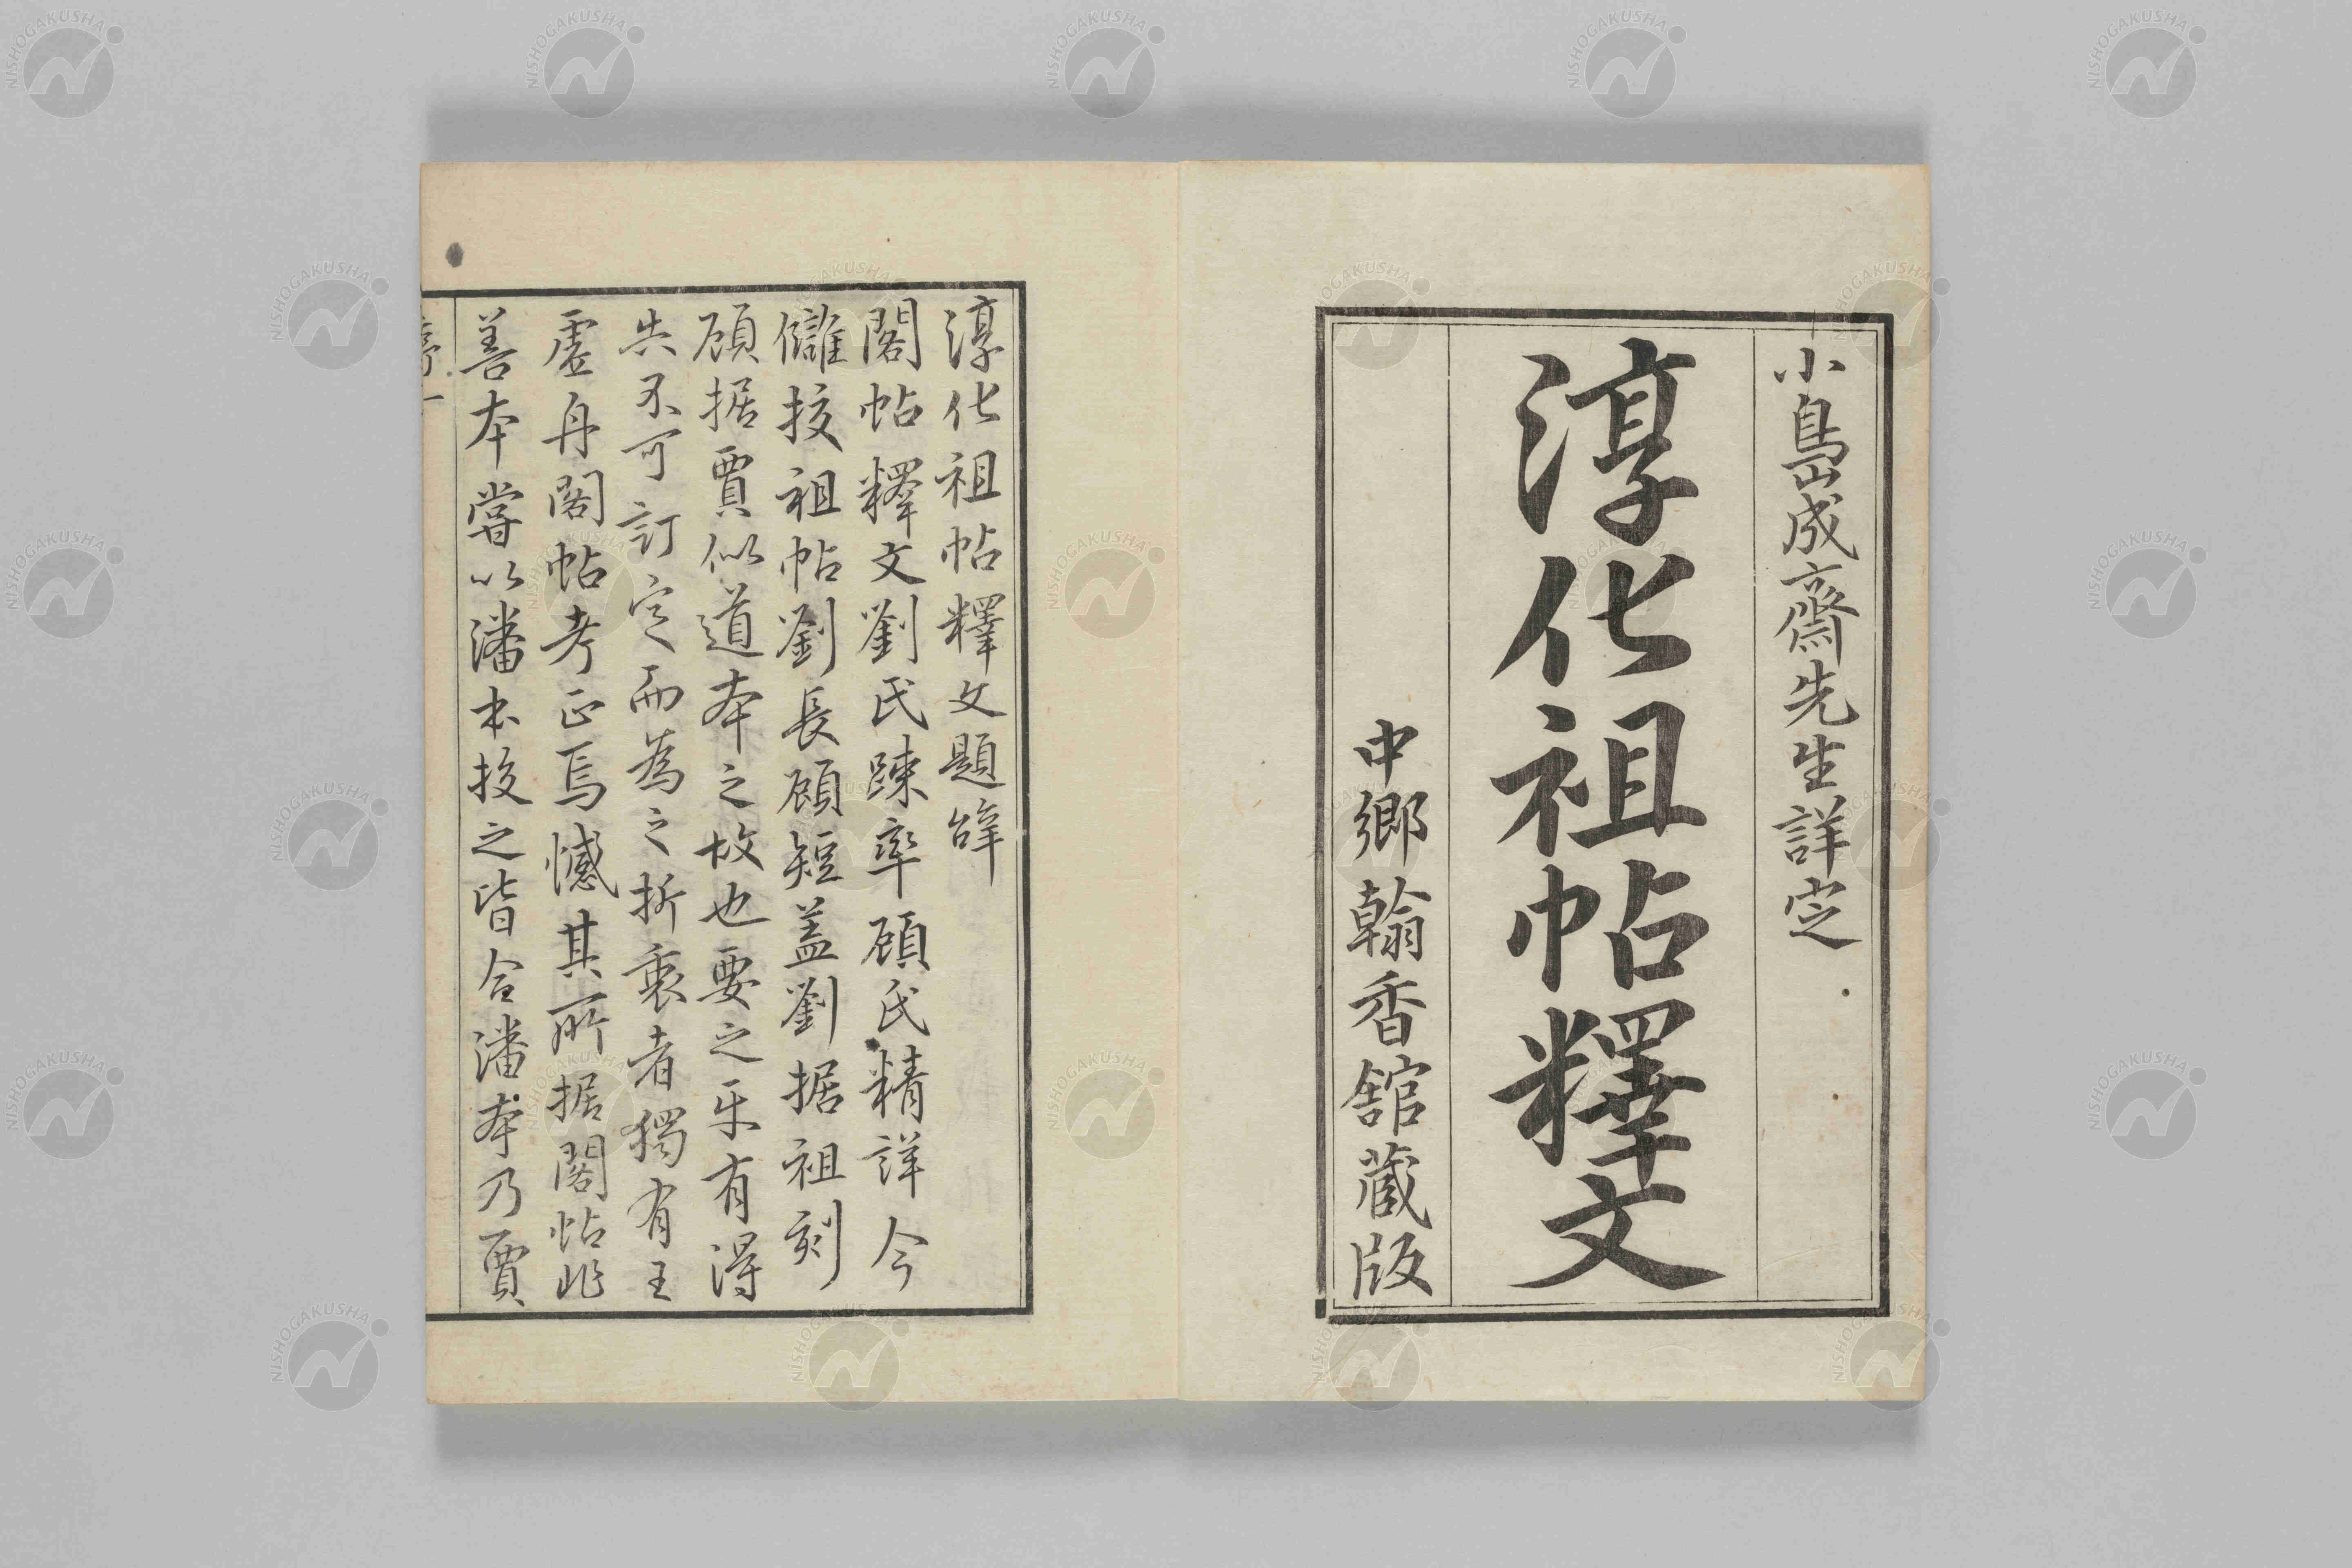 小嶌成齋先生詳定
淳化祖帖釋文
中鄉翰香舘蔵版
淳化祖帖釋文題辞
閣帖釋文劉氏踈率顧氏精詳今
讎挍祖帖劉長顧短盖劉据祖刻
顧据賈似道本之故也要之互有得
失不可訂定而為之折衷者獨有王
虚舟閣帖考正焉憾其所据閣帖非
善本嘗以潘本挍之皆合潘本乃賈
NISHOGAKUSHA